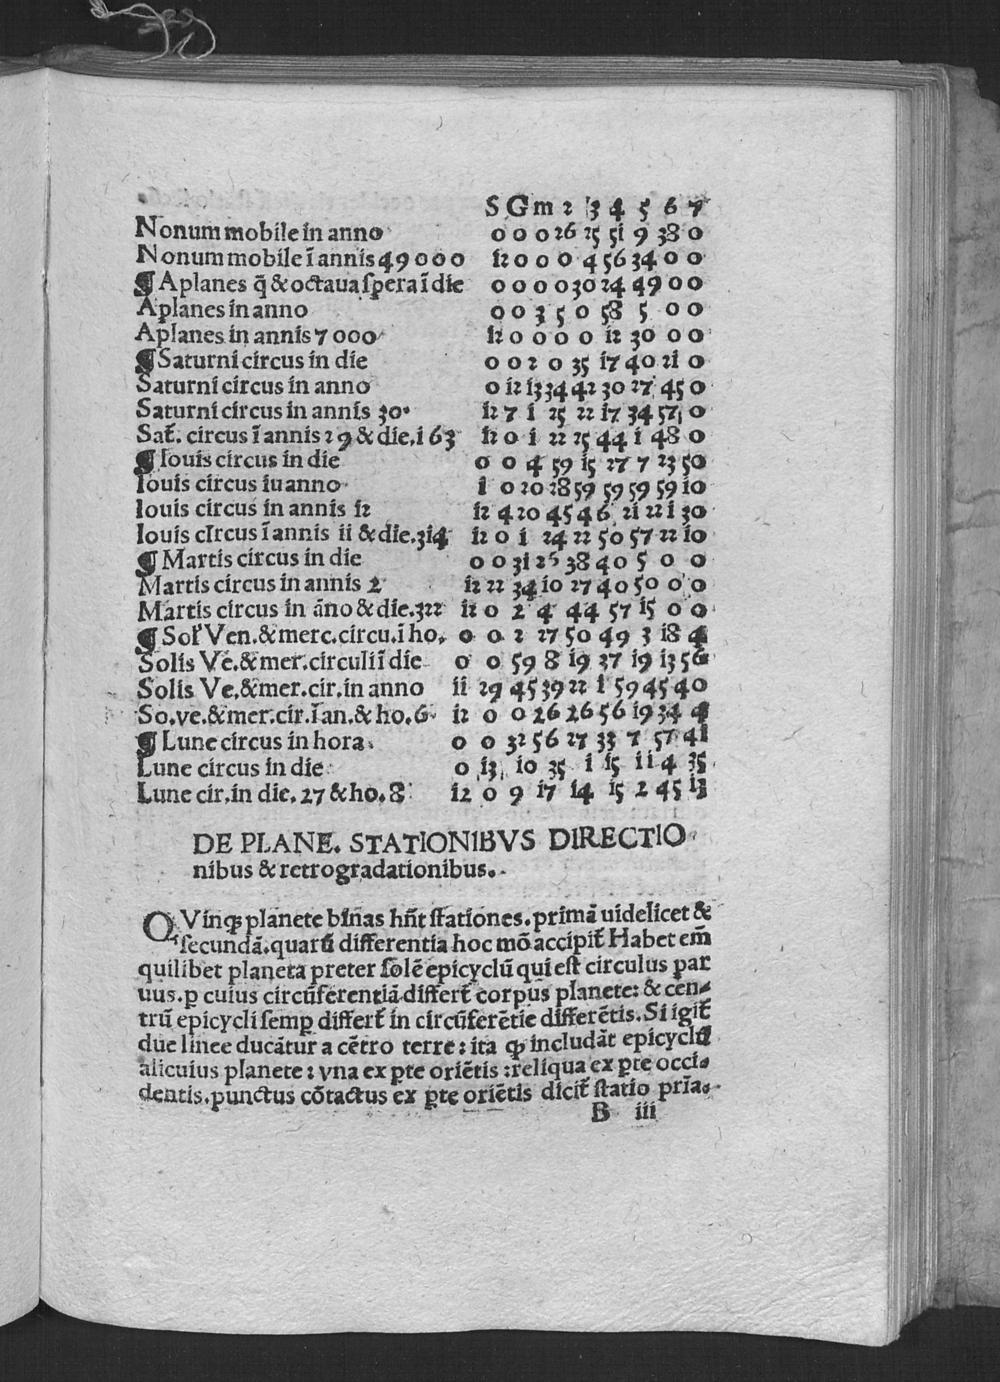 S G m 2 3 4 5 6 7
Nonum mobile in anno 0 0 0 26 25 51 9 38 0
Nonum mobile ī annis 49000 12 0 0 0 4 56 34 0 0
¶ Aplanes q̄ & octaua spera ī die 0 0 0 0 30 24 49 0 0
Aplanes in anno 0 0 3 5 0 58 5 0 0
Aplanes in annis 7000 12 0 0 0 0 12 30 0 0
¶ Saturni circus in die 0 0 2 0 35 17 40 21 0
Saturni circus in anno 0 12 13 34 42 30 27 45 0
Saturni circus in annis 30. 12 7 1 25 22 17 34 57 0
Sat̄. circus ī annis 29 & die. 163 12 0 1 22 25 44 1 48 0
¶ Iouis circus in die 0 0 4 59 15 27 7 23 50
Iouis circus iu anno 1 0 20 28 59 59 59 59 10
Iouis circus in annis 12 12 4 20 45 46 21 22 1 30
Iouis cIrcus ī annis 11 & die. 314 12 0 1 24 22 50 57 22 10
¶ Martis circus in die 0 0 31 26 38 40 5 0 0
Martis circus in annis 2 12 22 34 10 27 40 50 0 0
Martis circus in āno & die. 322 12 0 2 4 44 57 15 0 0
¶ Sol' Ven. & merc. circu. ī ho. 0 0 2 27 50 49 3 18 4
Solis Ve. & mer. circulī ī die 0 0 59 8 19 37 19 13 56
Solis Ve. & mer. cir. in anno 11 29 45 39 22 1 59 45 40
So. ve. & mer. cir. ī an. & ho. 6 12 0 0 26 26 56 19 34 4
¶ Lune circus in hora. 0 0 32 56 27 33 7 57 41
Lune circus in die 0 13 10 35 1 15 11 4 35
Lune cir. in die. 27 & ho. 8 12 0 9 17 14 15 2 45 13
DE PLANE. STATIONIBVS DIRECTIO
nibus & retrogradationibus.
QVinqꝫ planete binas hn̄t stationes. primā uidelicet &
secundā. quarū differentia hoc mō accipit̄ Habet em̄
quilibet planeta preter solē epicyclū qui est circulus par
uus. ꝑ cuius circūferentiā differt̄ corpus planete: & cen-
trū epicycli semꝑ differt̄ in circūferētie differētis. Si igit̄
due linee ducātur a cētro terre: ita ꝙ includāt epicyclū
alicuius planete: vna ex ꝑte oriētis: reliqua ex ꝑte occi-
dentis. punctus cōtactus ex ꝑte oriētis dicit̄ statio pria.
B iii